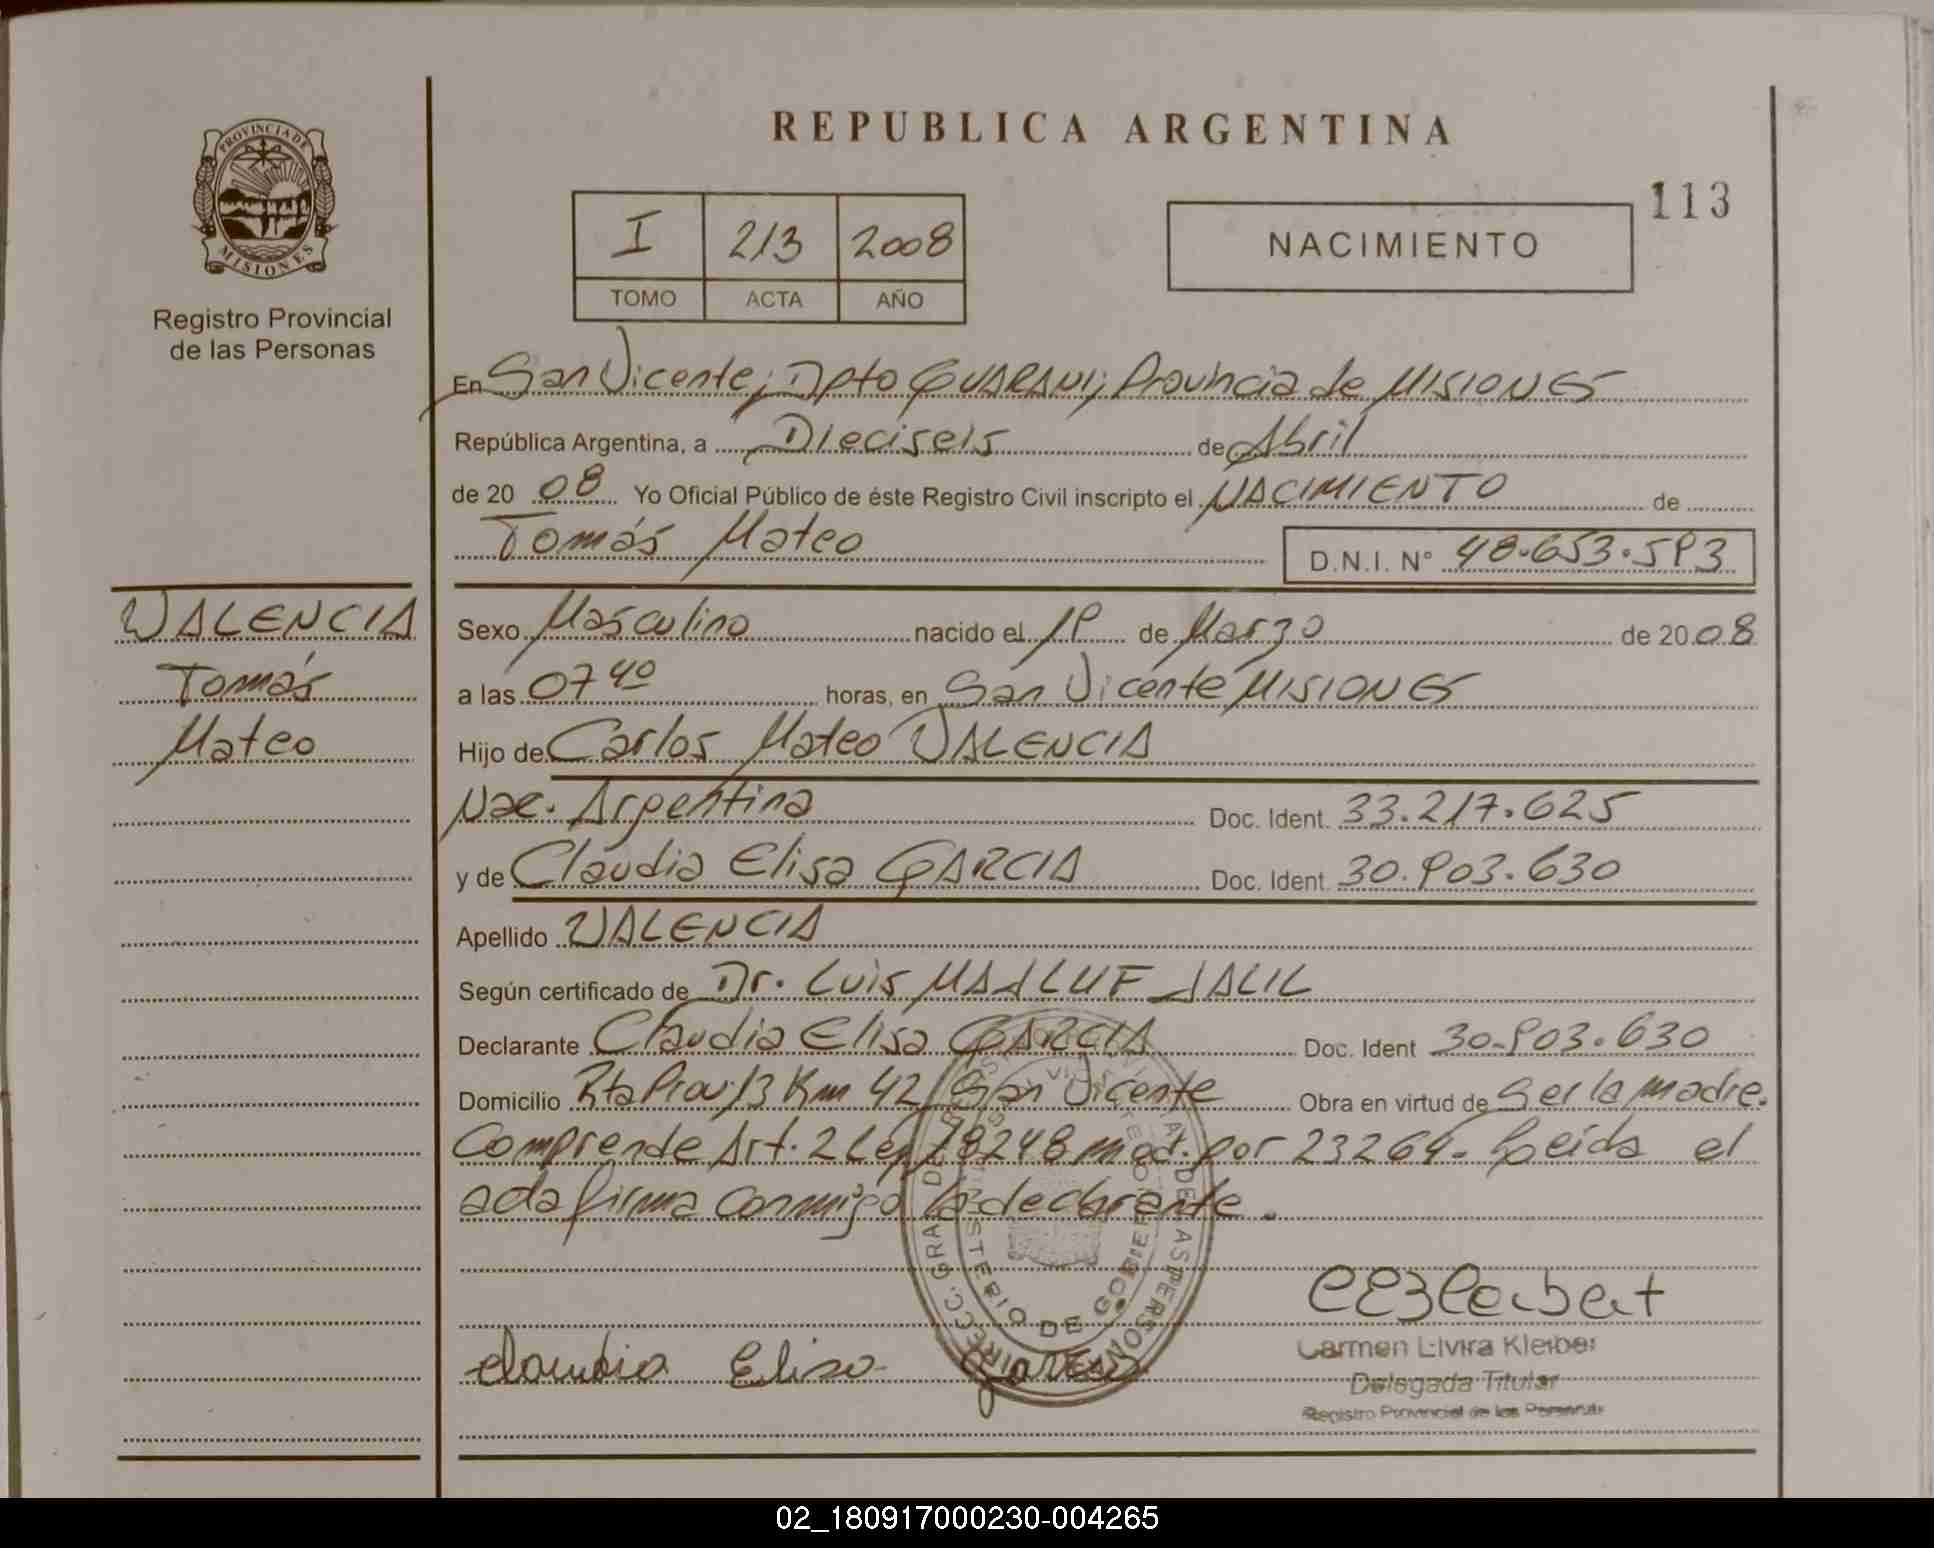 REPUBLICA ARGENTINA
113
PROVINCIA DE
MISIONES
Registro Provincial
de las Personas
I 213 2008
TOMO ACTA AÑO
NACIMIENTO
En San Vicente; Dpto GUARANI; Provincia de MISIONES
República Argentina, a Dieciseis de Abril
de 20 08 Yo Oficial Público de éste Registro Civil inscripto el NACIMIENTO de
Tomás Mateo D.N.I. Nº 48.653.593
VALENCIA
Tomás
Mateo
Sexo Masculino nacido el 19 de Marzo de 20 08
a las 07 40 horas, en San Vicente MISIONES
Hijo de Carlos Mateo VALENCIA
Nac. Argentina Doc. Ident. 33.217.625
y de Claudia Elisa GARCIA Doc. Ident. 30.903.630
Apellido VALENCIA
Según certificado de Dr. Luis MAJLUF JALIL
Declarante Claudia Elisa GARCIA Doc. Ident 30.903.630
Domicilio Rta Prov. 13 Km 42 San Vicente Obra en virtud de Ser la madre.
Comprende Art. 2 Ley 18248 mod. por 23264. Leida el
acta firma conmigo la declarante.
MINISTERIO DE GOBIERNO
Claudia Elisa Garcia
Carmen Elvira Kleiber
Delegada Titular
Registro Provincial de las Personas
02_180917000230-004265